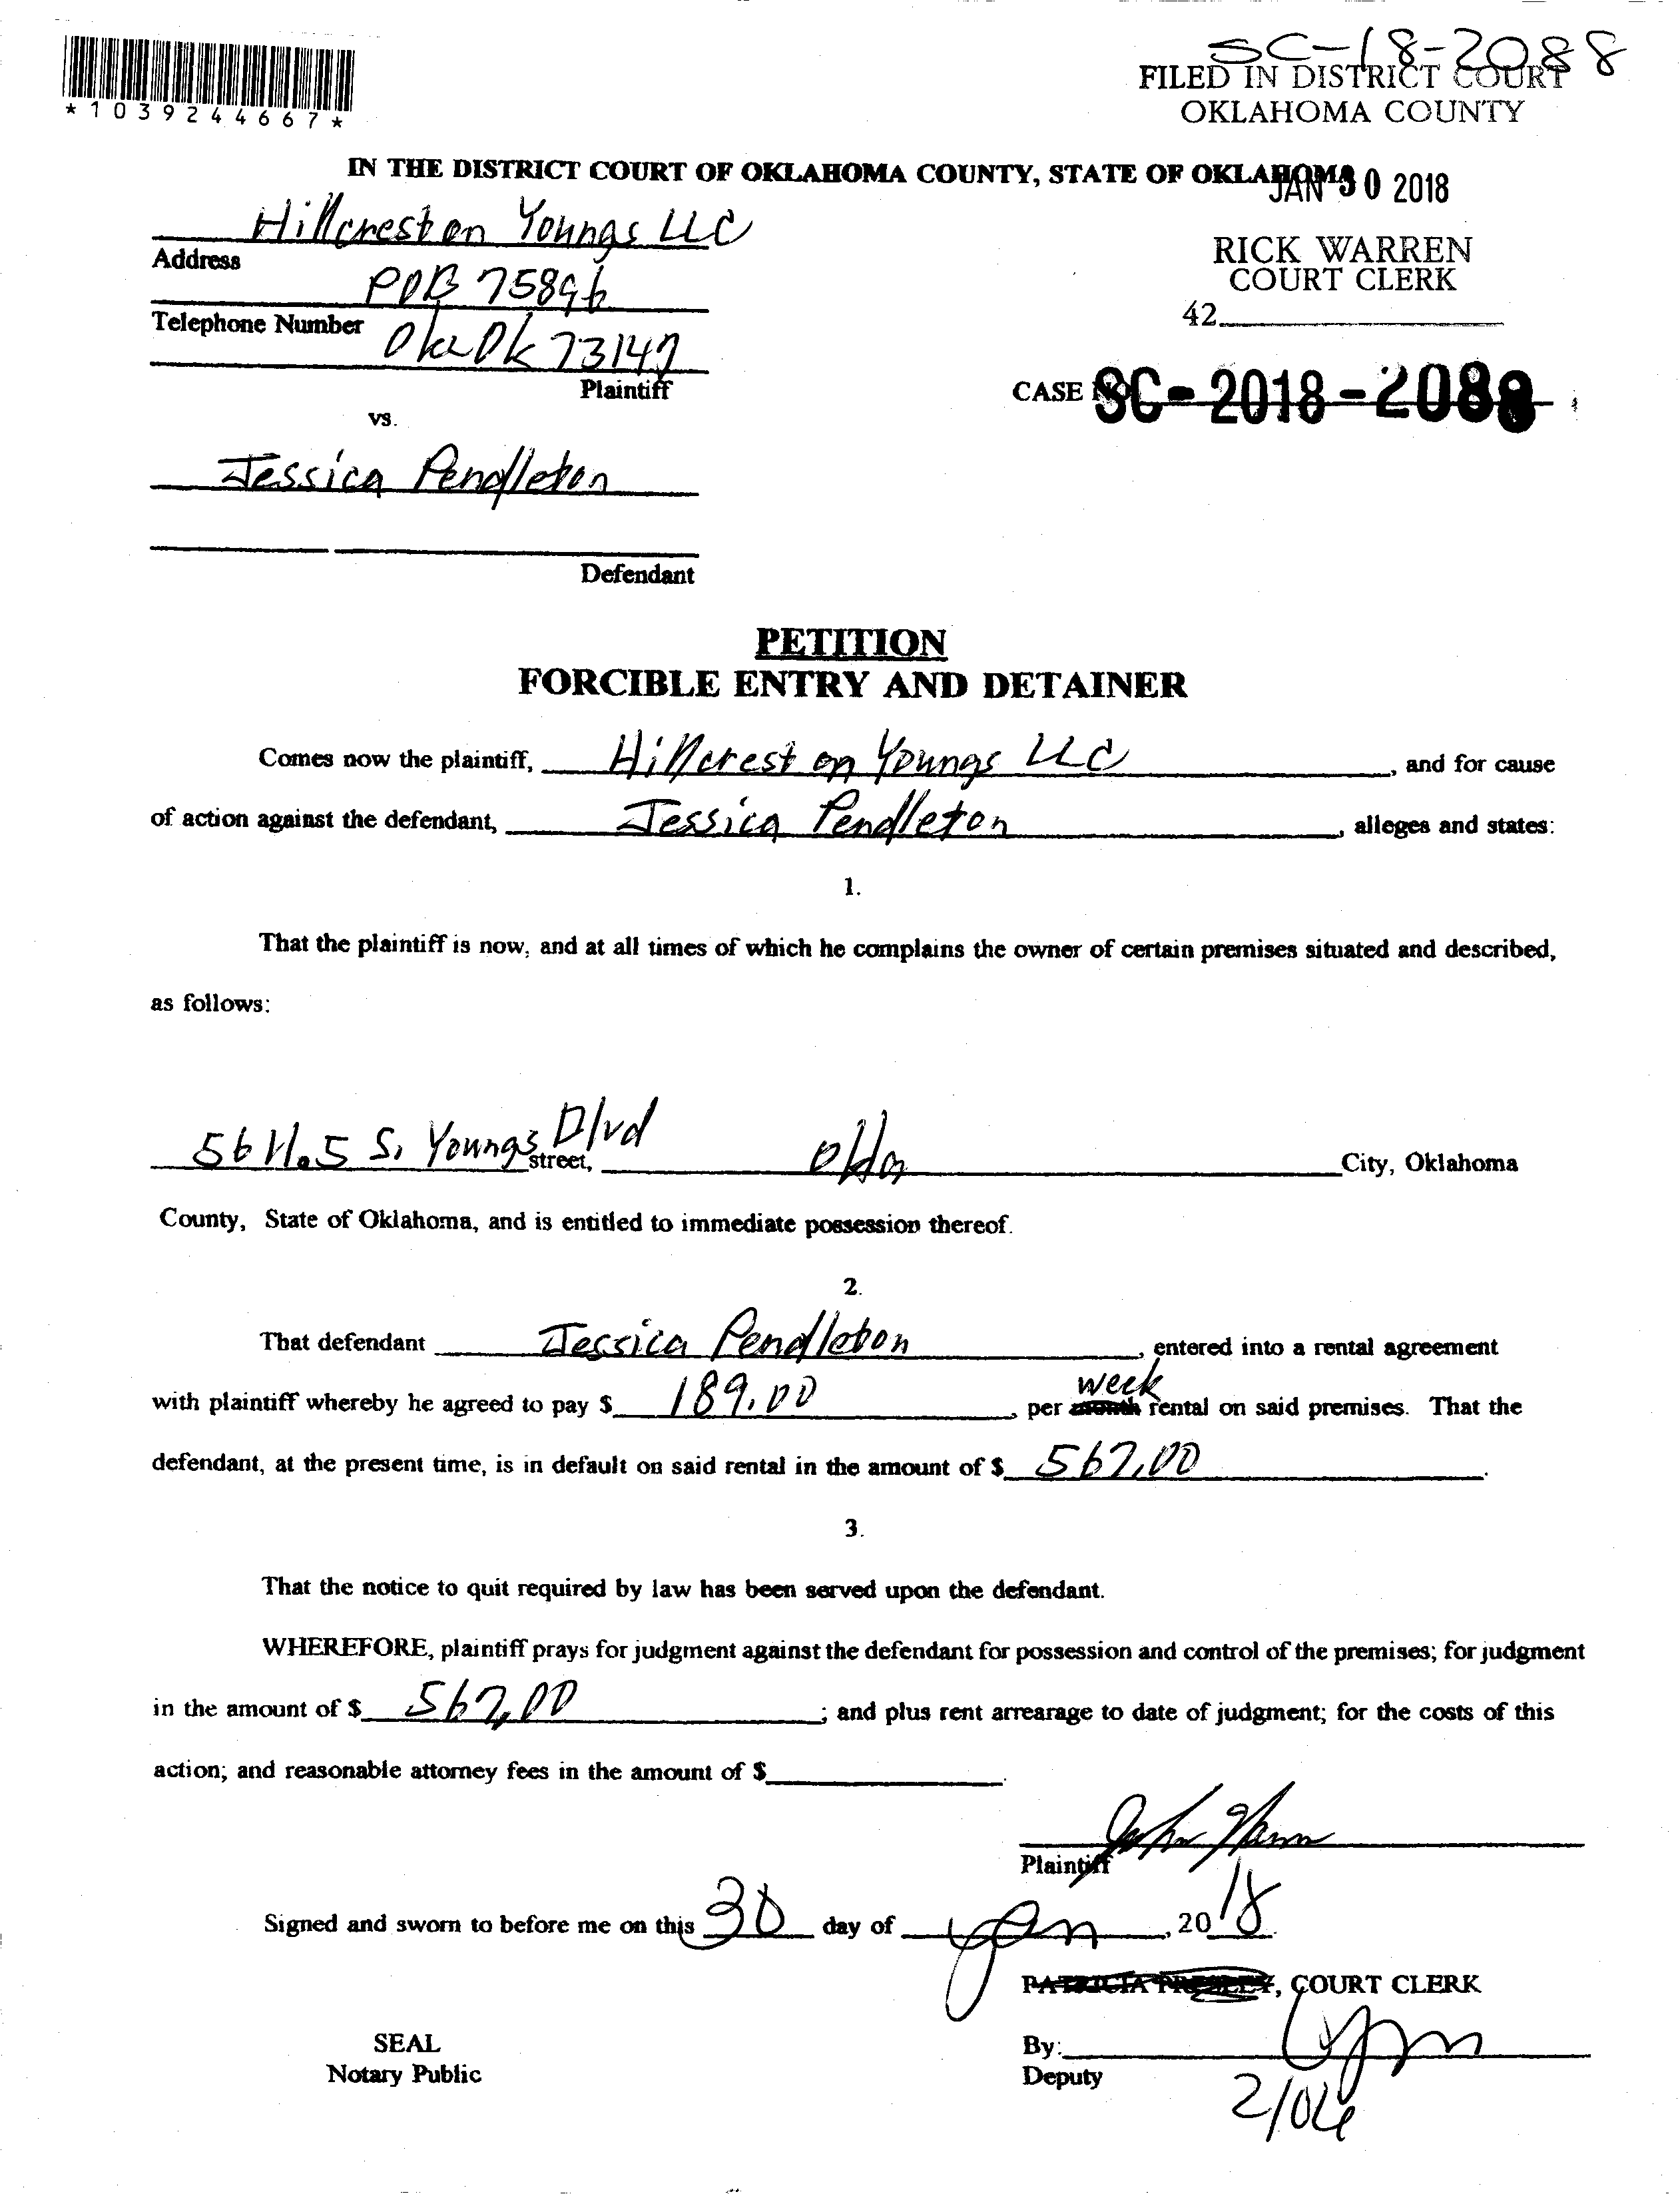 SC-18-2088
FILED IN DISTRICT COURT
OKLAHOMA COUNTY
*1039244667*
IN THE DISTRICT COURT OF OKLAHOMA COUNTY, STATE OF OKLAHOMA
JAN 30 2018
Hillcrest on Youngs LLC
RICK WARREN
COURT CLERK
Address
POB 75896
42
Telephone Number
Okc Ok 73147
Plaintiff
CASE NO. SC-2018-2088
vs.
Jessica Pendleton
Defendant
PETITION
FORCIBLE ENTRY AND DETAINER
Comes now the plaintiff, Hillcrest on Youngs LLC, and for cause
of action against the defendant, Jessica Pendleton, alleges and states:
1.
That the plaintiff is now, and at all times of which he complains the owner of certain premises situated and described,
as follows:
S. Youngs Blvd street, City, Oklahoma
County, State of Oklahoma, and is entitled to immediate possession thereof.
2.
That defendant Jessica Pendleton, entered into a rental agreement
with plaintiff whereby he agreed to pay $ 189.00, per month week rental on said premises. That the
defendant, at the present time, is in default on said rental in the amount of $ 567.00.
3.
That the notice to quit required by law has been served upon the defendant.
WHEREFORE, plaintiff prays for judgment against the defendant for possession and control of the premises; for judgment
in the amount of $ 567.00; and plus rent arrearage to date of judgment; for the costs of this
action; and reasonable attorney fees in the amount of $
Plaintiff
Signed and sworn to before me on this 30 day of Jan, 2018.
PATRICIA PRESLEY, COURT CLERK
SEAL
Notary Public
By:
Deputy